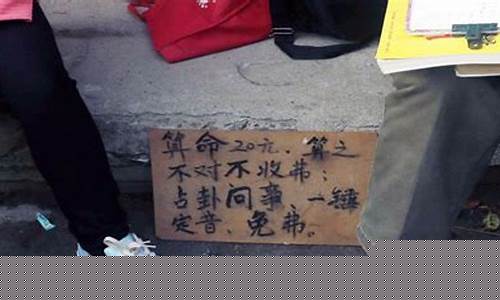 算命20元.算之
不对不收弗;
占卦问事、一锤
定音、免弗。